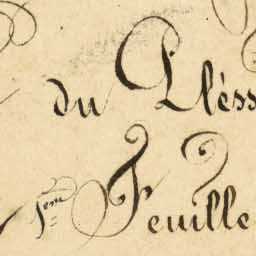 du Plèss
1ème Feuille